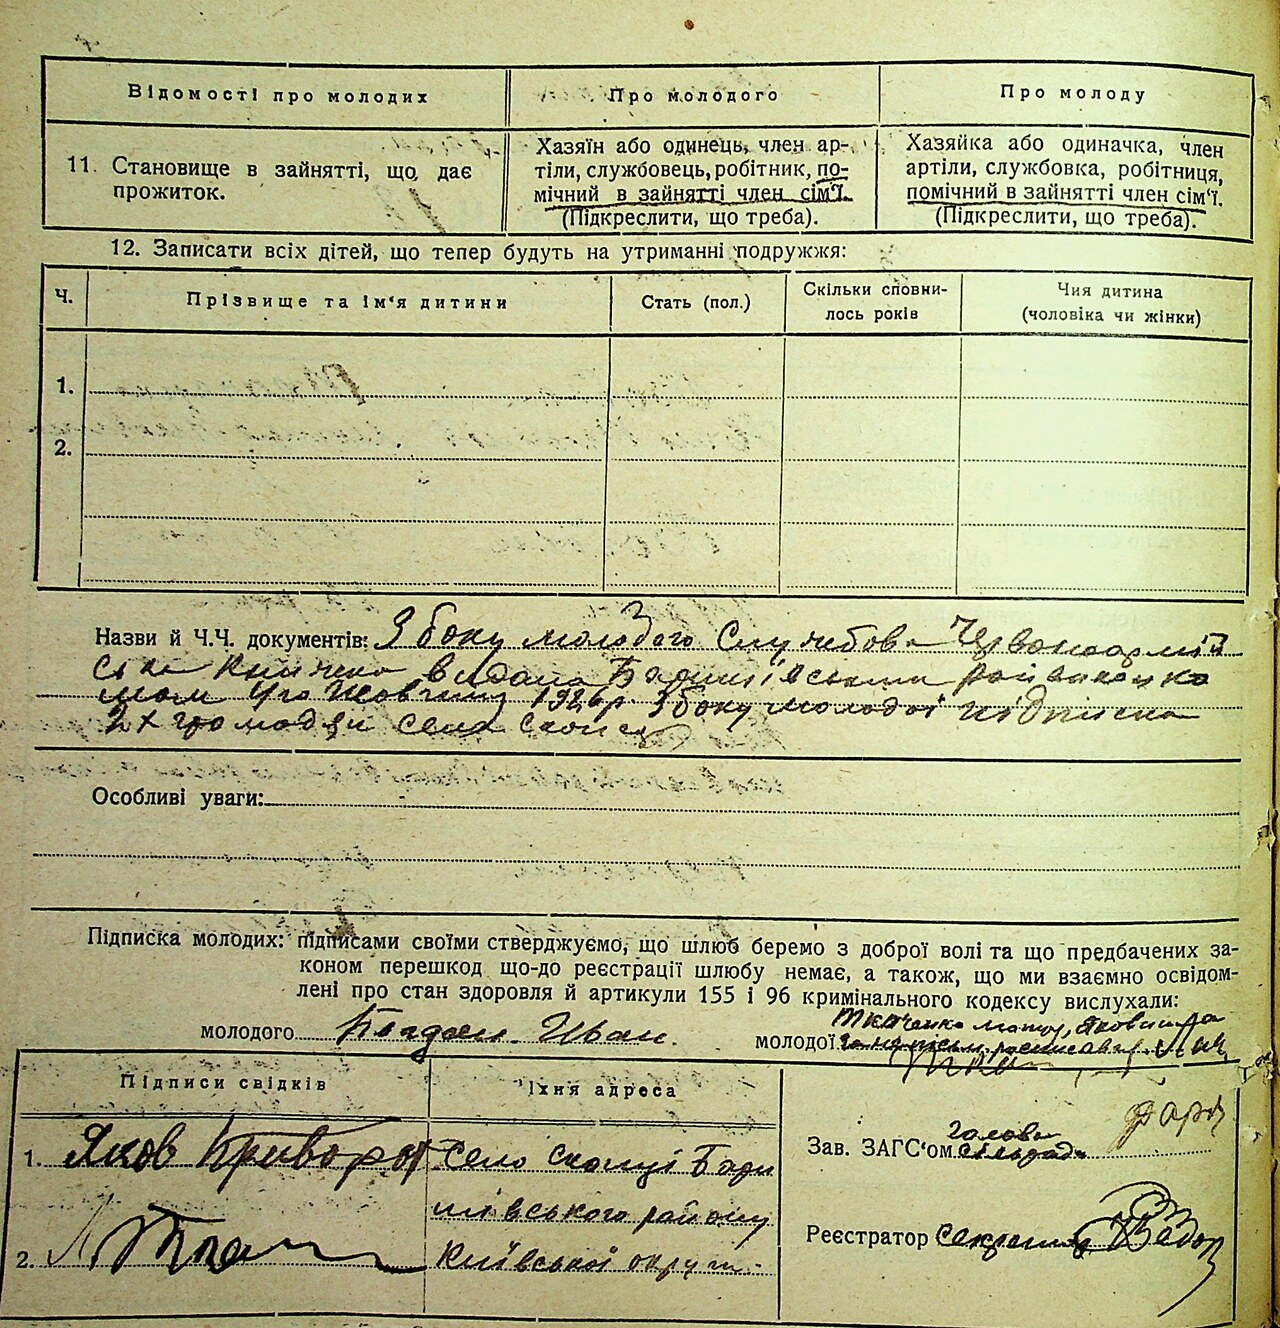 Відомості про молодих
Про молодого
Про молоду
11. Становище в зайнятті, що дає
прожиток.
Хазяїн або одинець, член ар-
тіли, службовець, робітник, по-
мічний в зайнятті член сім'ї.
(Підкреслити, що треба).
Хазяйка або одиначка, член
артіли, службовка, робітниця,
помічний в зайнятті член сім'ї.
(Підкреслити, що треба).
12. Записати всіх дітей, що тепер будуть на утриманні подружжя:
Ч.
Прізвище та ім'я дитини
Стать (пол.)
Скільки сповни-
лось років
Чия дитина
(чоловіка чи жінки)
1.
2.
Назви й Ч.Ч. документів: З боку молодого Службова Червоноармій
ська книжка видана Баришівським райвиконко
мом Жовтня 1926 р З боку молодої підписка
2х громадян села Скопці
Особливі уваги:
Підписка молодих: підписами своїми стверджуємо, що шлюб беремо з доброї волі та що предбачених за-
коном перешкод що-до реєстрації шлюбу немає, а також, що ми взаємно освідом-
лені про стан здоровля й артикули 155 і 96 кримінального кодексу вислухали:
молодого Богдан Иван
молодої Ткаченко
Підписи свідків
Їхня адреса
1. Яков Кривор
село Скопці Бари
шівського району
2.
Київської округи
Зав. ЗАГС'ом голова
сільради
Реєстратор секретар